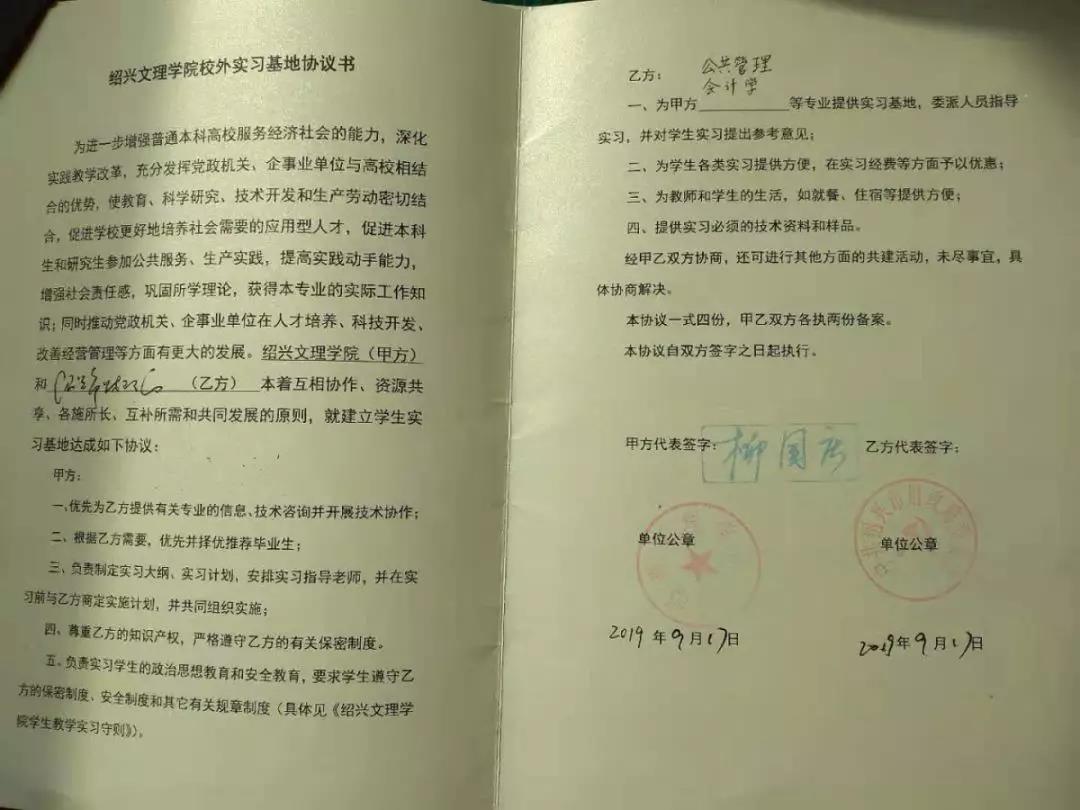 绍兴文理学院校外实习基地协议书
为进一步增强普通本科高校服务经济社会的能力，深化
实践教学改革，充分发挥党政机关、企事业单位与高校相结
合的优势，使教育、科学研究、技术开发和生产劳动密切结
合，促进学校更好地培养社会需要的应用型人才，促进本科
生和研究生参加公共服务、生产实践，提高实践动手能力，
增强社会责任感，巩固所学理论，获得本专业的实际工作知
识；同时推动党政机关、企事业单位在人才培养、科技开发、
改善经营管理等方面有更大的发展。绍兴文理学院（甲方）
和（乙方）本着互相协作、资源共
享、各施所长、互补所需和共同发展的原则，就建立学生实
习基地达成如下协议：
甲方：
一、优先为乙方提供有关专业的信息、技术咨询并开展技术协作；
二、根据乙方需要，优先并择优推荐毕业生；
三、负责制定实习大纲、实习计划，安排实习指导老师，并在实
习前与乙方商定实施计划，并共同组织实施；
四、尊重乙方的知识产权，严格遵守乙方的有关保密制度。
五、负责实习学生的政治思想教育和安全教育，要求学生遵守乙
方的保密制度、安全制度和其它有关规章制度（具体见《绍兴文理学
院学生教学实习守则》）。
乙方：
公共管理
会计学
一、为甲方等专业提供实习基地，委派人员指导
实习，并对学生实习提出参考意见；
二、为学生各类实习提供方便，在实习经费等方面予以优惠；
三、为教师和学生的生活，如就餐、住宿等提供方便；
四、提供实习必须的技术资料和样品。
经甲乙双方协商，还可进行其他方面的共建活动，未尽事宜，具
体协商解决。
本协议一式四份，甲乙双方各执两份备案。
本协议自双方签字之日起执行。
甲方代表签字： 柳国庆 乙方代表签字：
单位公章 单位公章
2019年9月17日 2019年9月17日